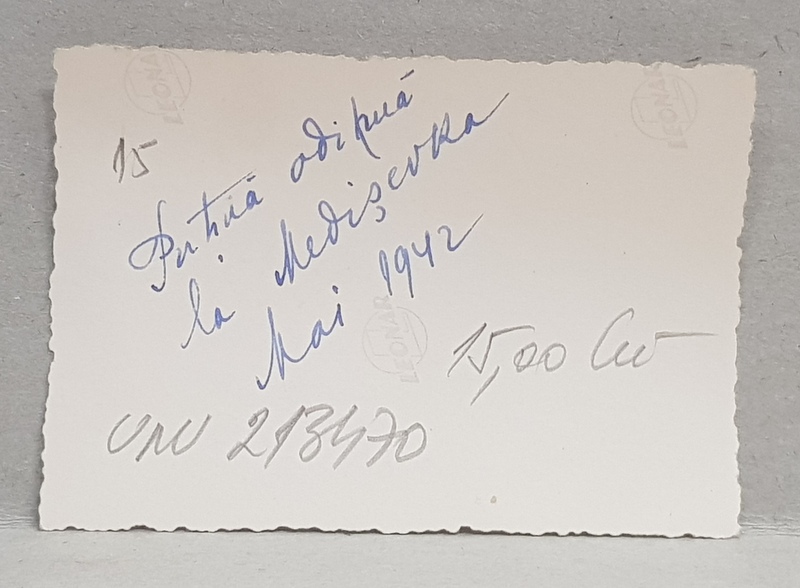 15
Puțină odihnă
la Medișevka
Mai 1942
15,00 lei
UNU 213470
LEONAR
LEONAR
LEONAR